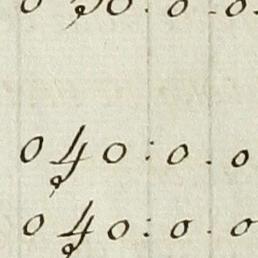 0 30 : 0 . 0.
0 40 : 0 . 0
0 40 : 0 . 0